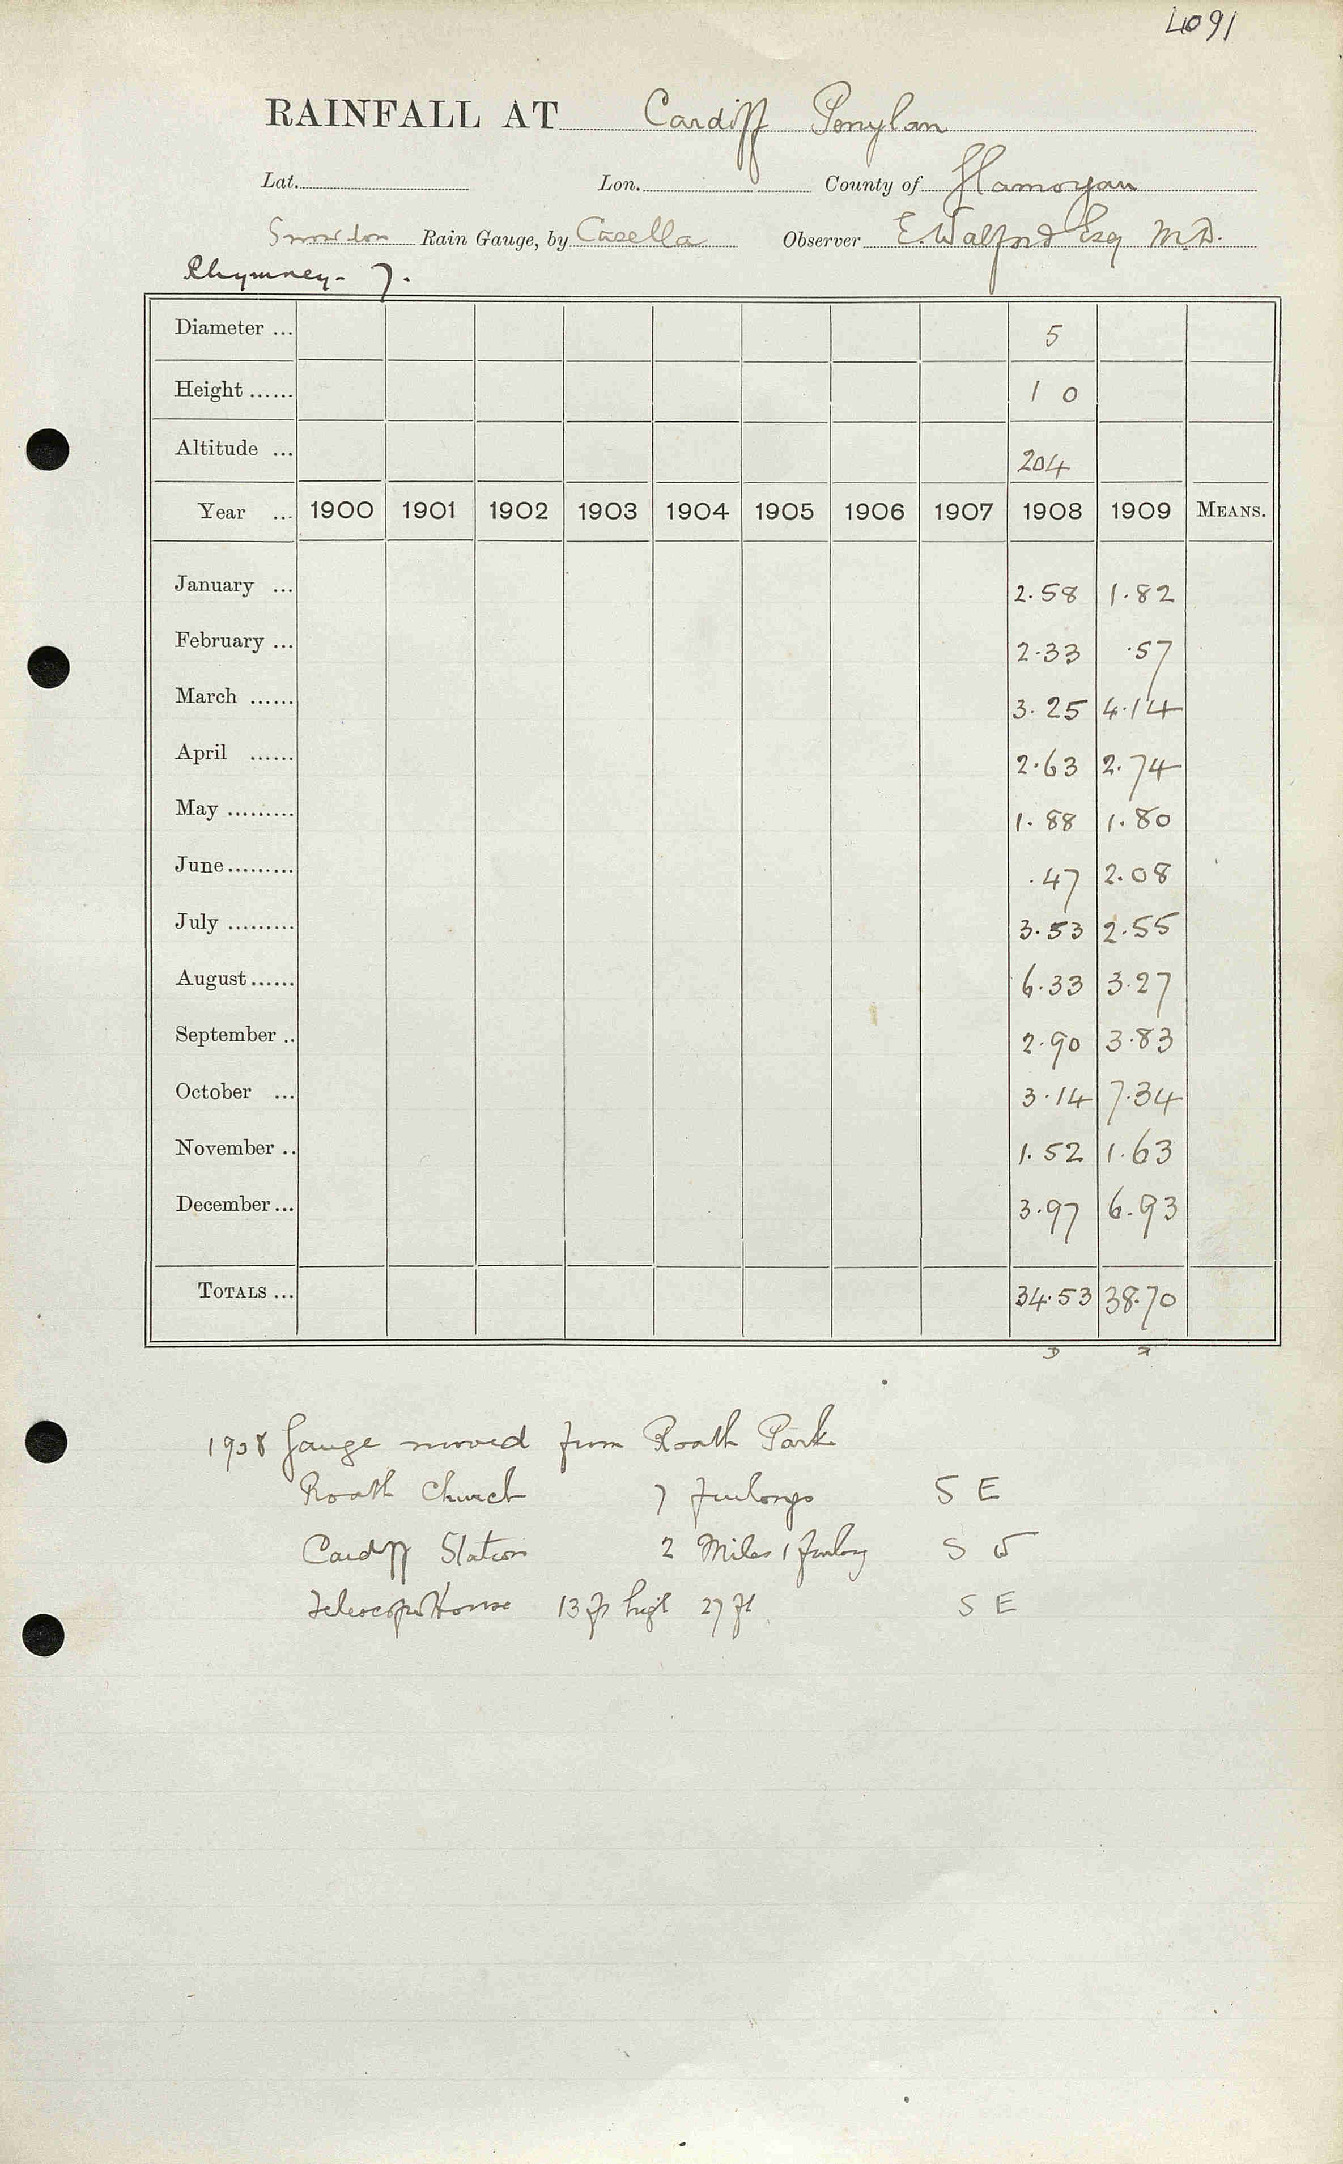 4091
RAINFALL AT Cardiff Penylan
Lat. Lon. County of Glamorgan
Snowdon Rain Gauge, by Casella Observer E. Walford Esq M.D.
Rhymney - 7.
Diameter ... 5
Height ...... 1 0
Altitude ... 204
Year ... 1900 1901 1902 1903 1904 1905 1906 1907 1908 1909 MEANS.
January ... 2.58 1.82
February ... 2.33 .57
March ...... 3.25 4.14
April ...... 2.63 2.74
May ......... 1.88 1.80
June ......... .47 2.08
July ......... 3.53 2.55
August ...... 6.33 3.27
September .. 2.90 3.83
October ... 3.14 7.34
November .. 1.52 1.63
December ... 3.97 6.93
TOTALS ... 34.53 38.70
1908 Gauge moved from Roath Park
Roath Church 7 furlongs S E
Cardiff Station 2 Miles 1 furlong S W
Telescope House 13 ft high 27 ft S E